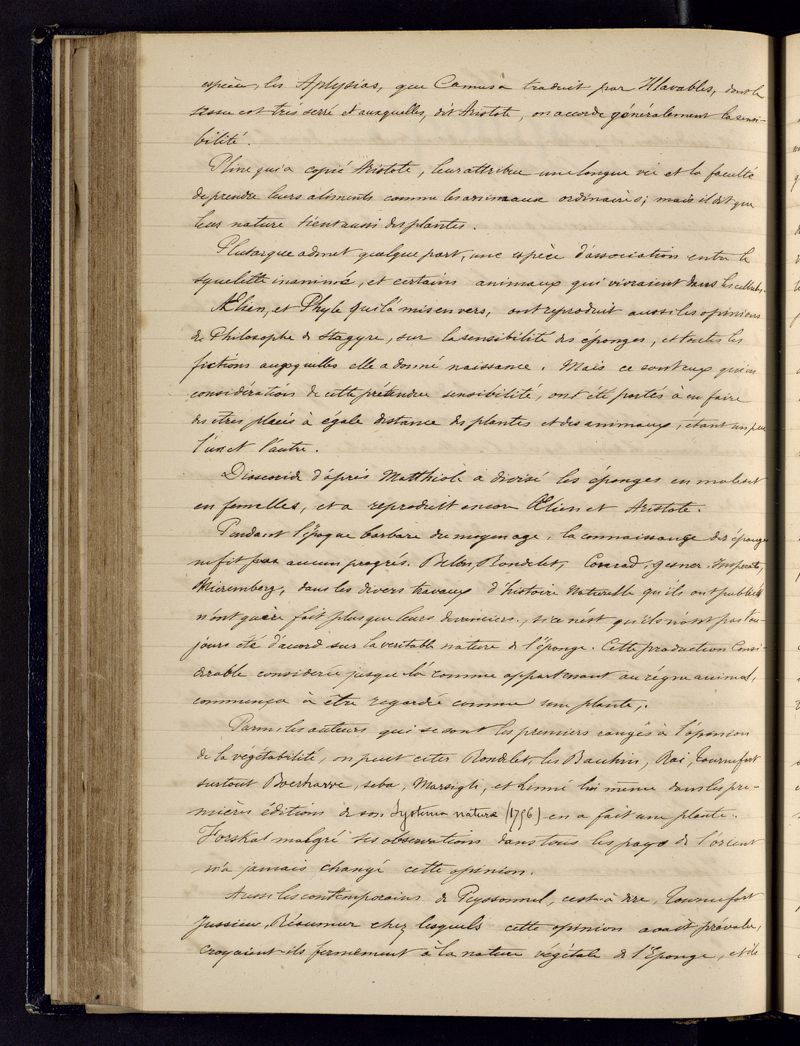 espèces, les Aplysias, que Camus a traduit par Illavables, dont le
tissu est très serré et auxquelles, dit Aristote, on accorde généralement la sensi-
bilité.
Pline qui a copié Aristote, leur attribue une longue vie et la faculté
de prendre leurs aliments comme les animaux ordinaires; mais il dit que
leur nature tient aussi des plantes.
Plutarque admet quelque part, une espèce d'association entre le
squelette inanimé, et certains animaux qui vivraient dans les cellules.
Ælien, et Phyle qui l'a mis en vers, ont reproduit aussi les opinions
de Philosophe de Stagyre, sur la sensibilité des éponges, et toutes les
fictions auxquelles elle a donné naissance. Mais ce sont eux qui en
considérations de cette prétendue sensibilité, ont été portés à en faire
des etres placés à égale distance des plantes et des animaux, étant un peu
l'un et l'autre.
Dioscoride d'après Matthiole a divisé les éponges en males et
en femelles, et a reproduit encore Ælien et Aristote.
Pendant l'Époque barbare du moyen age, la connaissance des éponges
ne fit pas aucun progrés. Belon, Rondelet, Conrad, gesner, Imperati,
Nieremberg, dans les divers travaux d'histoire Naturelle qu'ils ont publiés
n'ont guère fait plus que leurs devanciers, si ce n'est qu'ils n'ont pas tou-
jours été d'acord sur la veritable nature de l'éponge. Cette production Consi-
dérable considerée jusque là comme appartenant au régne animal,
commença à être regardée comme une plante,.
Parmi les auteurs qui se sont les premiers rangés à l'opinion
de la vegétabilité, on peut citer Rondelet, les Bauhin, Rai, Tournefort
surtout Boerhavve, seba, Marsigli, et Linné lui même dans les pre-
mières éditions de son Systema natura (1756) en a fait une plante.
Forskal malgré ses observations dans tous les pays de l'orient
n'a jamais changé cette opinion.
Aussi les contemporains de Peyssonnel, cest-à dire, Tournefort
Jussieu, Réaumur chez lesquels cette opinion avait prévalu,
croyaient-ils fermement à la nature végétale de l'Eponge, et ils